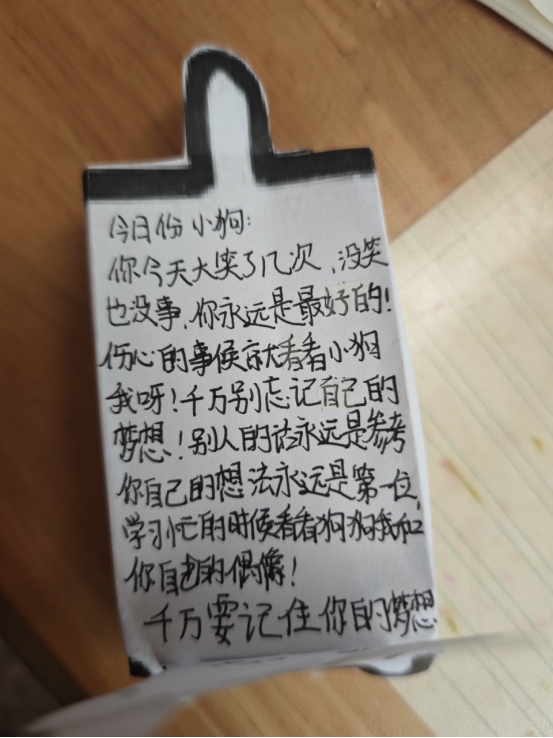 今日份小狗:
你今天大笑了几次,没笑
也没事,你永远是最好的!
伤心的事候就看看小狗
我呀!千万别忘记自己的
梦想!别人的话永远是参考
你自己的想法永远是第一位,
学习忙的时候看看狗狗我和
你自己的偶像!
千万要记住你的梦想